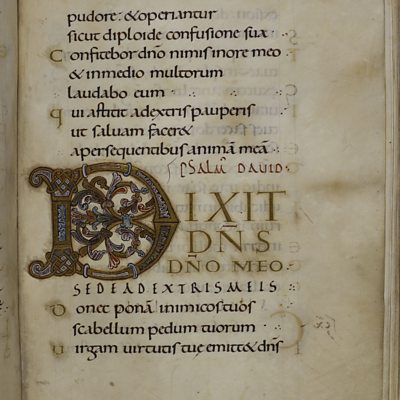 pudore · & operiantur
sicut diploide confusione sua
Confitebor dño nimis in ore meo
& in medio multorum
laudabo eum
qui astitit a dextris pauperis
ut saluam facer&
a persequentibus animā meā
PSALM DAVID
DIXIT
DÑS
DÑO MEO
SEDE A DEXTRIS MEIS
Donec ponā inimicos tuos
scabellum pedum tuorum
uirgam uirtutis tue emitt& dñs